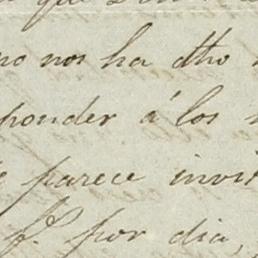 no nos ha dho
ponder á los
parece invi
f. por dia,